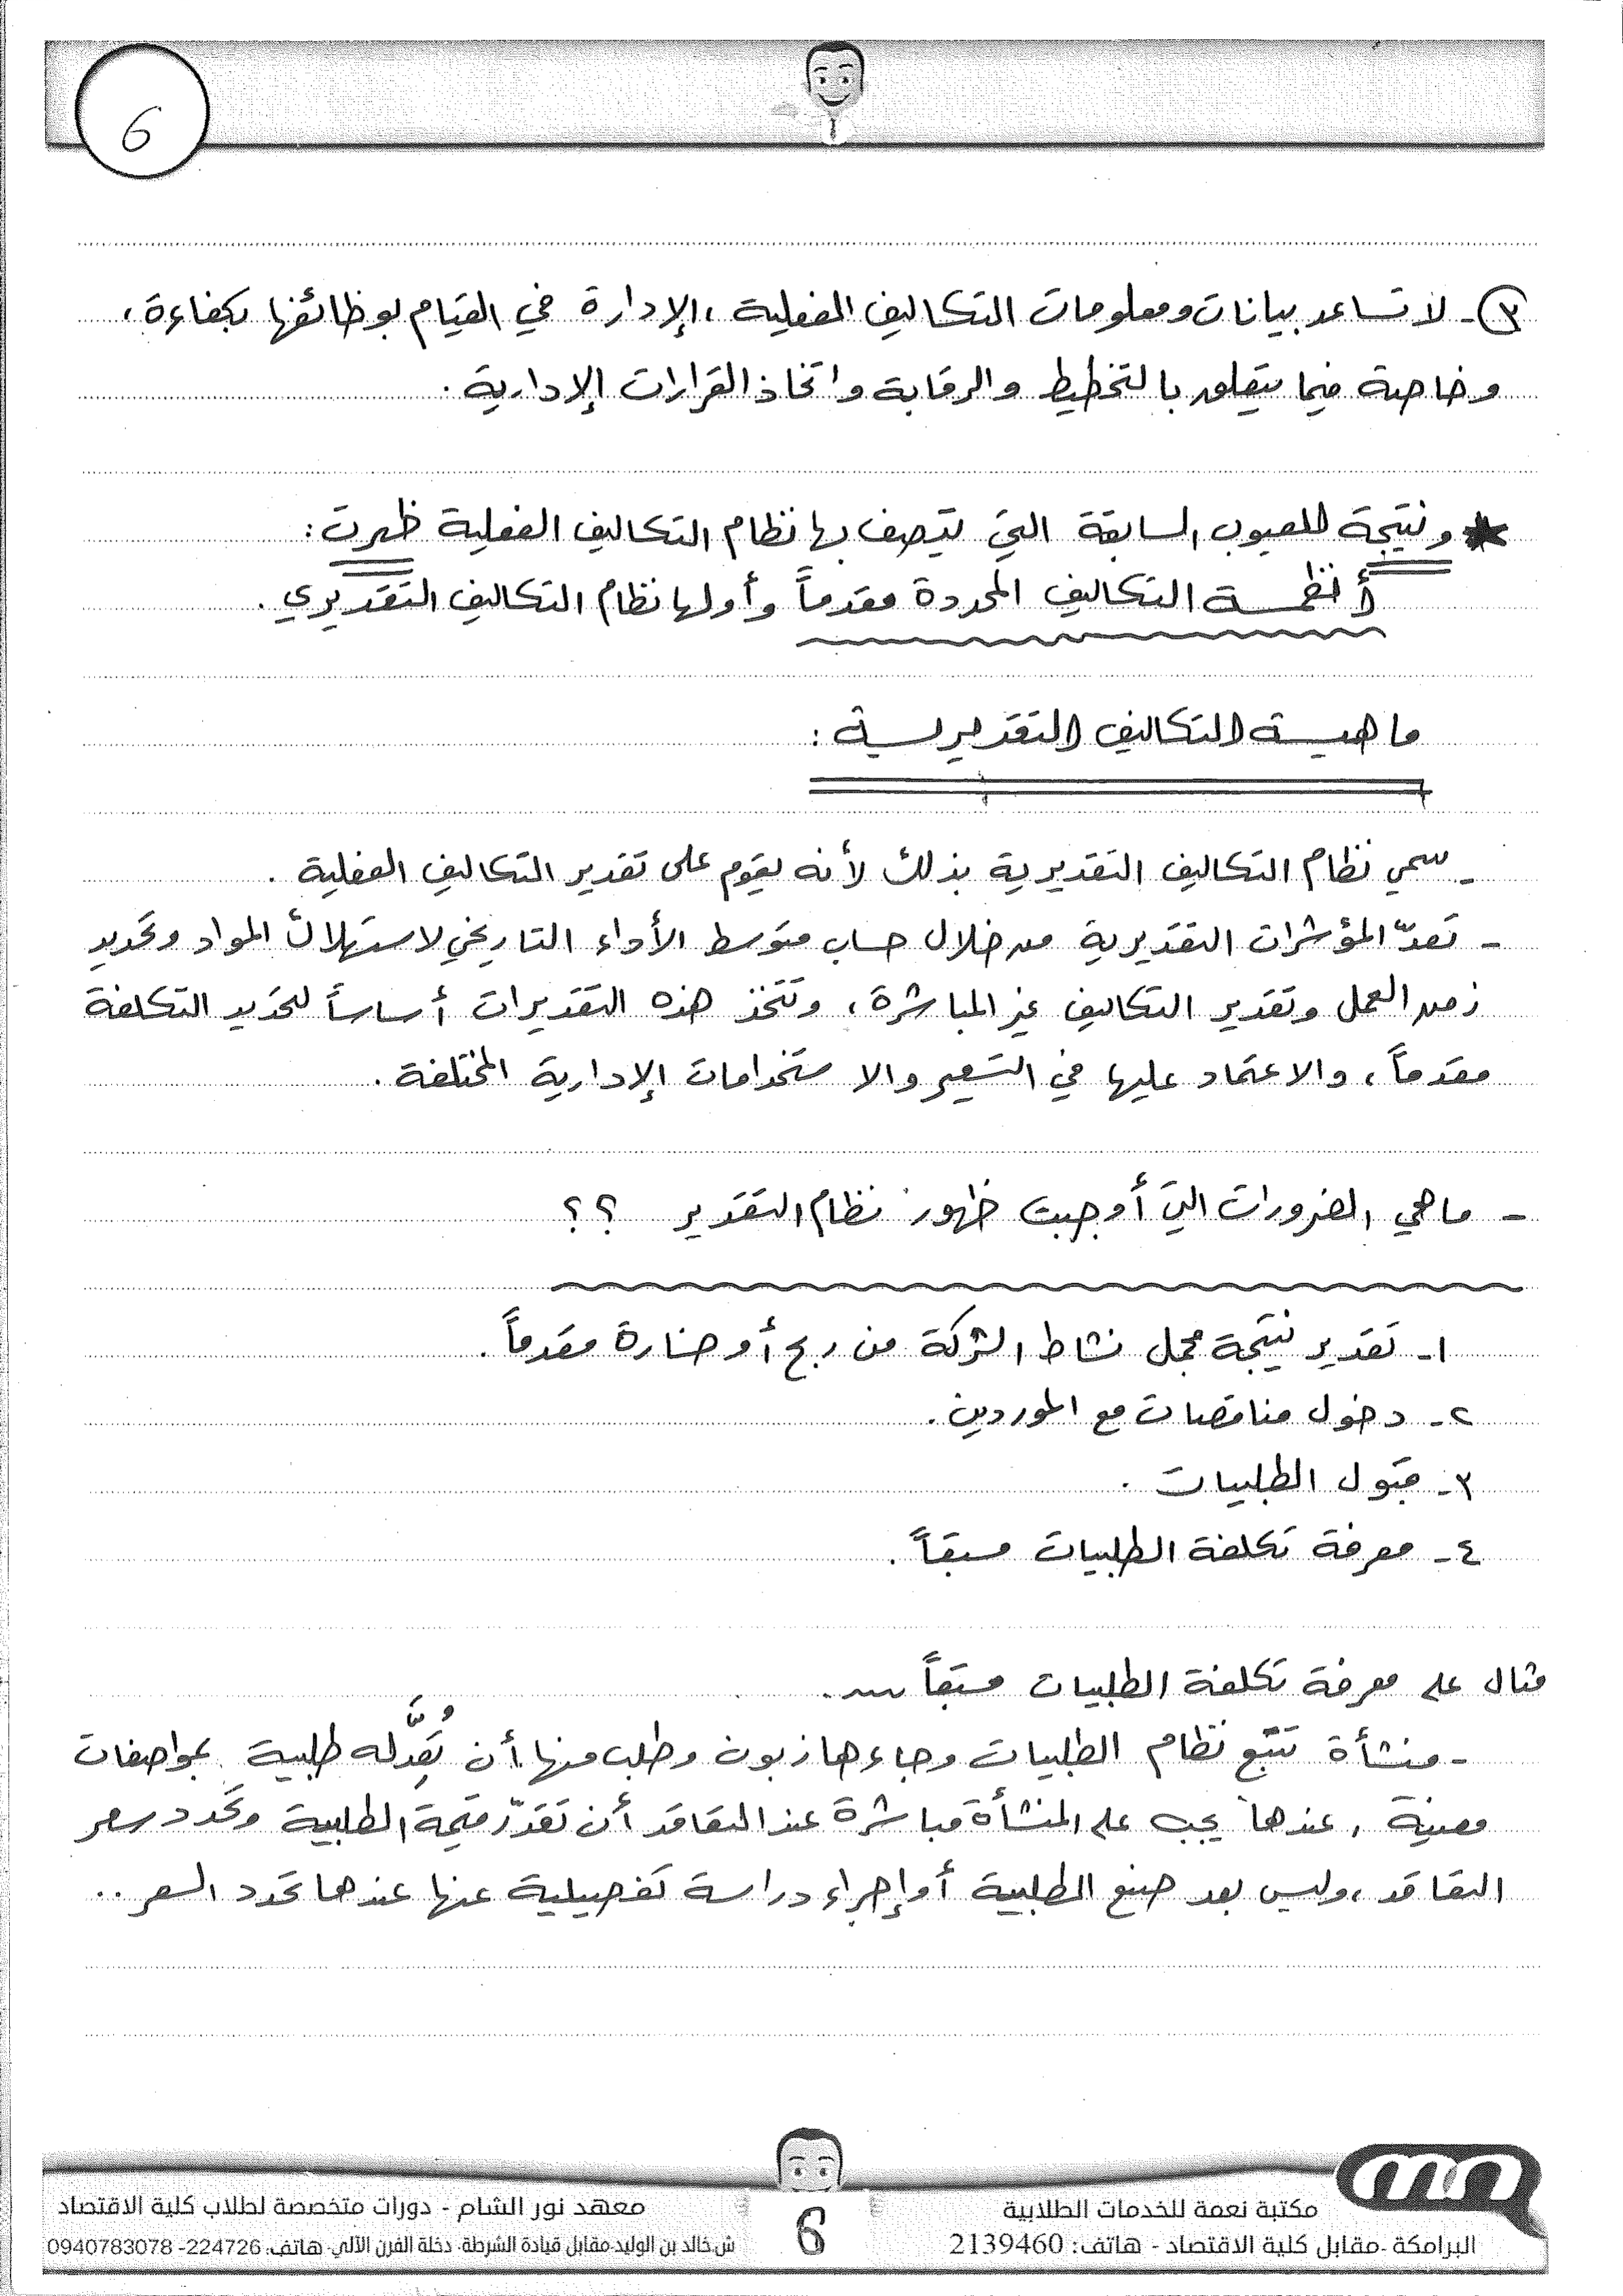 6
٣- لا تساعد بيانات ومعلومات التكاليف الفعلية، الإدارة في القيام بوظائفها بكفاءة،
وخاصة فيما يتعلق بالتخطيط والرقابة واتخاذ القرارات الإدارية.
* ونتيجة للعيوب السابقة التي يتصف بها نظام التكاليف الفعلية ظهرت:
أنظمة التكاليف المحددة مقدماً وأولها نظام التكاليف التقديري.
ماهية التكاليف التقديرية:
- سمي نظام التكاليف التقديرية بذلك لأنه يقوم على تقدير التكاليف الفعلية.
- تعدّ المؤشرات التقديرية من خلال حساب متوسط الأداء التاريخي لاستهلاك المواد وتحديد
زمن العمل وتقدير التكاليف غير المباشرة، وتتخذ هذه التقديرات أساساً لتحديد التكلفة
مقدماً، والاعتماد عليها في التسعير والاستخدامات الإدارية المختلفة.
- ماهي الضرورات التي أوجبت ظهور نظام التقدير ؟؟
١- تقدير نتيجة مجمل نشاط الشركة من ربح أو خسارة مقدماً.
٢- دخول مناقصات مع الموردين.
٣- قبول الطلبيات.
٤- معرفة تكلفة الطلبيات مسبقاً.
مثال على معرفة تكلفة الطلبيات مسبقاً
- منشأة تتبع نظام الطلبيات وجاءها زبون وطلب منها أن تُعِدَّ له طلبية بمواصفات
معينة، عندها يجب على المنشأة مباشرة عند التعاقد أن تقدّر قيمة الطلبية وتحدد سعر
التعاقد، وليس بعد صنع الطلبية أو إجراء دراسة تفصيلية عنها عندها تحدد السعر..
مكتبة نعمة للخدمات الطلابية
البرامكة -مقابل كلية الاقتصاد - هاتف: 2139460
6
معهد نور الشام - دورات متخصصة لطلاب كلية الاقتصاد
ش.خالد بن الوليد-مقابل قيادة الشرطة- دخلة الفرن الآلي- هاتف: 224726- 0940783078